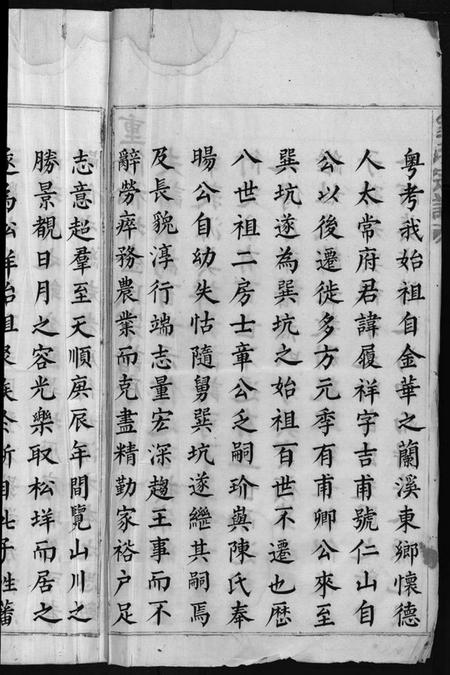 粵考我始祖自金華之蘭溪東鄉懷德
人太常府君諱履祥字吉甫號仁山自
公以後遷徙多方元季有甫卿公來至
巽坑遂為巽坑之始祖百世不遷也歷
八世祖二房士章公乏嗣玠與陳氏奉
暘公自幼失怙隨舅巽坑遂繼其嗣焉
及長貌淳行端志量宏深趨王事而不
辭勞瘁務農業而克盡精勤家裕戶足
志意超羣至天順庚辰年間覽山川之
勝景覩日月之容光樂取松垟而居之
遂為松垟始祖